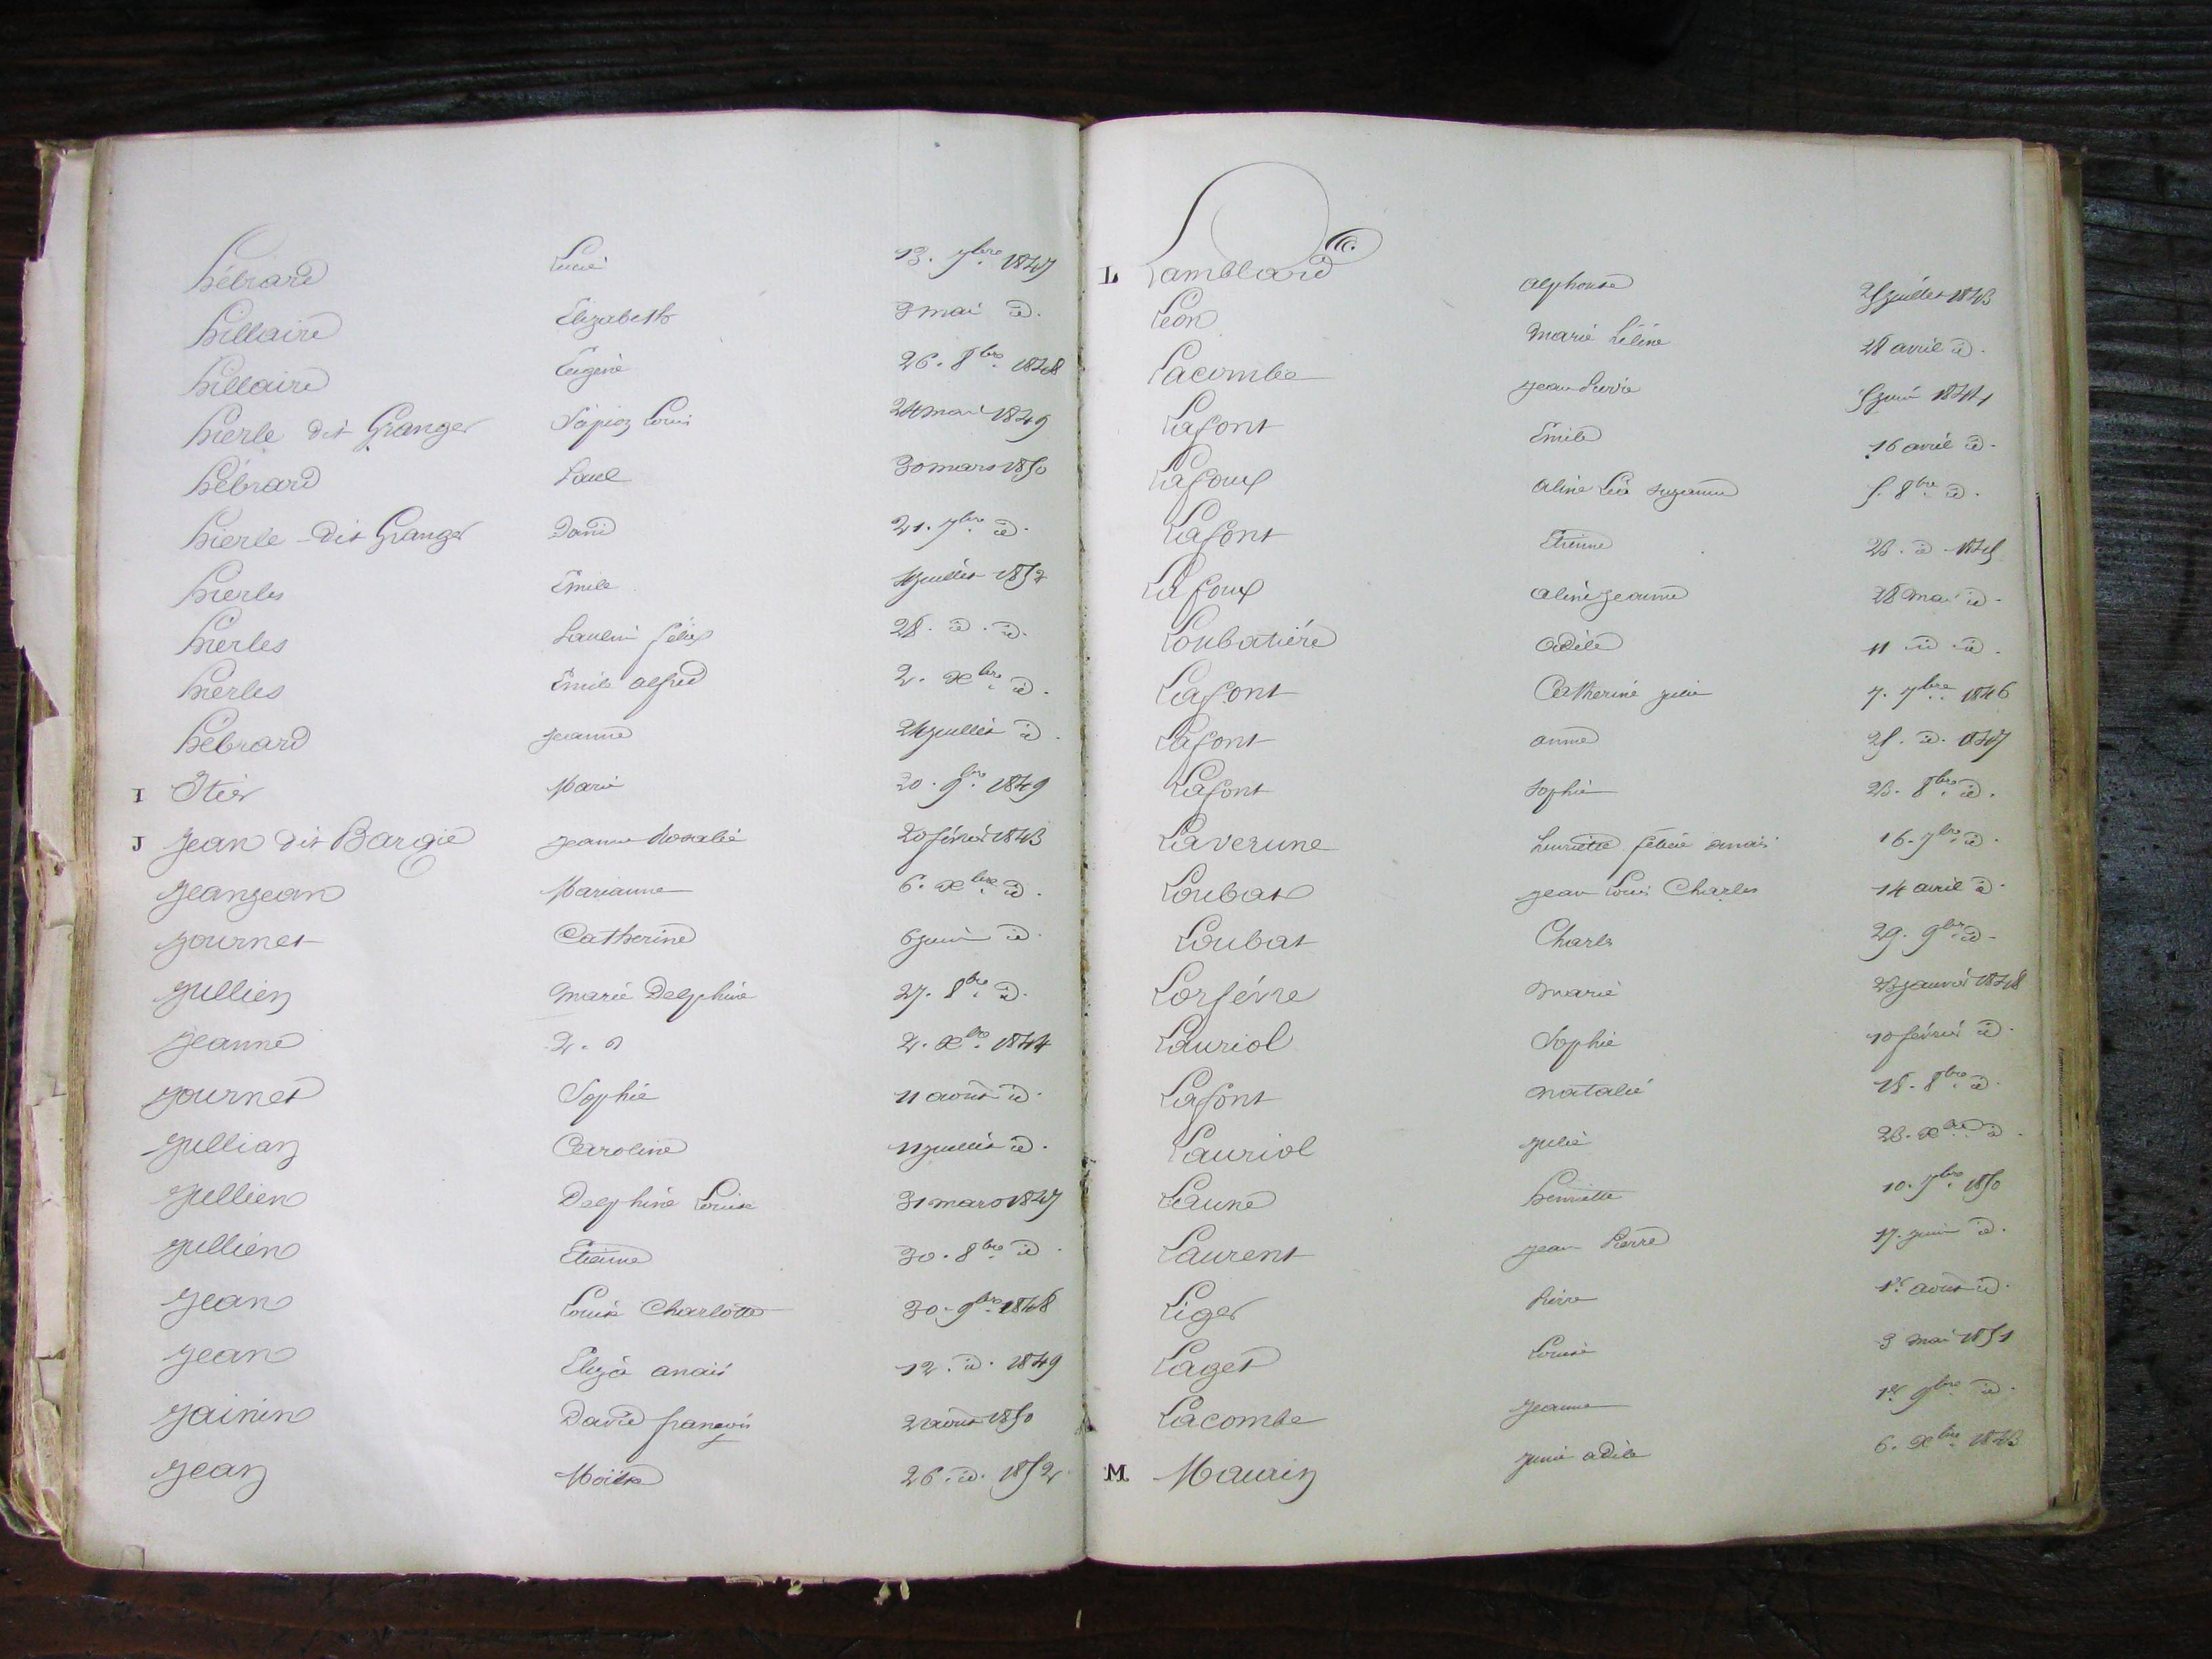 hébrard Lucie 13. 7bre 1847
hillaire Elizabeth 3 mai id.
hillaire Eugène 26. 8bre 1848
hierle dit Granger Scipion Louis 24 mai 1849
hébrard Paul 30 mars 1850
hierle dit Granger David 21. 7bre id.
hierles Emile 4 juillet 1852
hierles Paulin félix 28. id. id.
hierles Emile alfred 2. Xbre id.
hébrard jeanne 24 juillet id.
I Itier Marie 20. 9bre 1849
J jean dit Bargie jeanne Rosalie 20 février 1843
jeanjean Marianne 6. Xbre id.
journet Catherine 6 juin id.
jullien marie Delphine 27. 8bre id.
jeanne 2. Xbre 1844
journet Sophie 11 août id.
jullian Caroline 11 juillet id.
jullien Delphine Louise 31 mars 1847
jullien Etienne 30. 8bre id.
jean Louise Charlotte 30. 9bre 1848
jean Eliza anaïs 12. id. 1849
jainin David françois 2 août 1850
jean Moïse 26. id. 1852
L Lamblard alphonse 25 juillet 1843
Léon marie Céline 28 avril id.
Lacombe jean Pierre 5 juin 1844
Lafont Emile 16 avril id.
Lafoux aline Léa suzanne 5. 8bre id.
Lafont Etienne 23. id. 1845
Lafoux aline jeanne 28 mai id.
Loubatière adèle 11 id. id.
Lafont Catherine julie 7. 7bre 1846
Lafont anne 25. id. 1847
Lafont sophie 23. 8bre id.
Laverune henriette félicie anaïs 16. 7bre id.
Loubat jean Louis Charles 14 avril id.
Loubat Charles 29. 9bre id.
Lorfévre marie 23 janvier 1848
Lauriol Sophie 10 février id.
Lafont natalie 18. 8bre id.
Lauriol julie 23. Xbre id.
Laune henriette 10. 7bre 1850
Laurent jean Pierre 17. juin id.
Liger Pierre 1er août id.
Laget Louise 3 mai 1851
Lacombe jeanne 18 9bre id.
M Maurin junie adèle 6. Xbre 1843